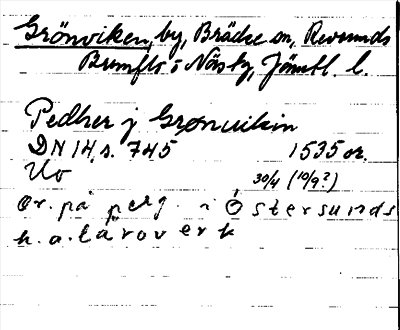 Grönviken, by, Bräcke sn, Revsunds
Brunflo o Näsby, Jämtl. l.
Pedher j Grønuikin
DN 14, s. 745 1535 or.
Uo 30/4 (10/9?)
Or. på perg. i Östersunds
h. a. läroverk